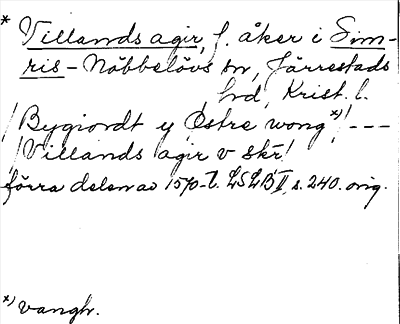 * Villands agir, f. åker i Sim-
ris - Nöbbelövs sn, Järrestads
hd, Krist. l.
/Bygiordt y Østre wong *)/ ---
/Villands agir v skr/
förra delen av 1570-t. LSLB II, s. 240. orig.
*) vangh.